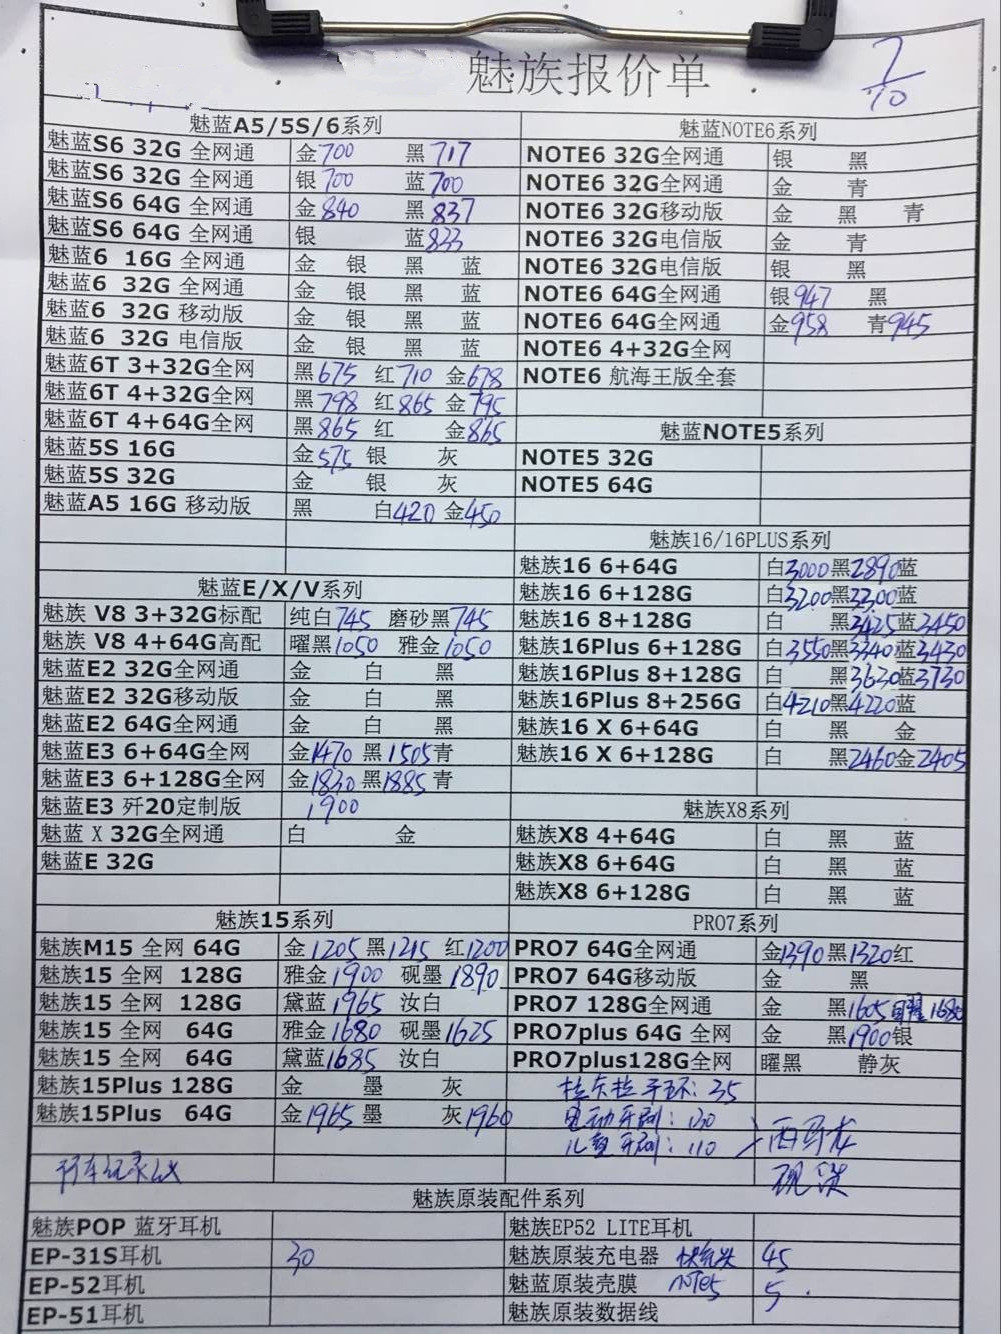 魅族报价单
7/10
魅蓝A5/5S/6系列
魅蓝S6 32G 全网通 金700 黑717
魅蓝S6 32G 全网通 银700 蓝700
魅蓝S6 64G 全网通 金840 黑837
魅蓝S6 64G 全网通 银 蓝833
魅蓝6 16G 全网通 金 银 黑 蓝
魅蓝6 32G 全网通 金 银 黑 蓝
魅蓝6 32G 移动版 金 银 黑 蓝
魅蓝6 32G 电信版 金 银 黑 蓝
魅蓝6T 3+32G全网 黑675 红710 金678
魅蓝6T 4+32G全网 黑798 红865 金795
魅蓝6T 4+64G全网 黑865 红 金865
魅蓝5S 16G 金575 银 灰
魅蓝5S 32G 金 银 灰
魅蓝A5 16G 移动版 黑 白420 金450
魅蓝E/X/V系列
魅族 V8 3+32G标配 纯白745 磨砂黑745
魅族 V8 4+64G高配 曜黑1050 雅金1050
魅蓝E2 32G全网通 金 白 黑
魅蓝E2 32G移动版 金 白 黑
魅蓝E2 64G全网通 金 白 黑
魅蓝E3 6+64G全网 金1470 黑1505青
魅蓝E3 6+128G全网 金1830黑1885青
魅蓝E3 歼20定制版 1900
魅蓝 X 32G全网通 白 金
魅蓝E 32G
魅族15系列
魅族M15 全网 64G 金1205黑1215 红1200
魅族15 全网 128G 雅金1900 砚墨1890
魅族15 全网 128G 黛蓝1965 汝白
魅族15 全网 64G 雅金1680 砚墨1625
魅族15 全网 64G 黛蓝1685 汝白
魅族15Plus 128G 金 墨 灰
魅族15Plus 64G 金1965墨 灰1960
行车记录仪
魅蓝NOTE6系列
NOTE6 32G全网通 银 黑
NOTE6 32G全网通 金 青
NOTE6 32G移动版 金 黑 青
NOTE6 32G电信版 金 青
NOTE6 32G电信版 银 黑
NOTE6 64G全网通 银947 黑
NOTE6 64G全网通 金958 青945
NOTE6 4+32G全网
NOTE6 航海王版全套
魅蓝NOTE5系列
NOTE5 32G
NOTE5 64G
魅族16/16PLUS系列
魅族16 6+64G 白3000黑2890蓝
魅族16 6+128G 白3200黑3300蓝
魅族16 8+128G 白 黑3425蓝3450
魅族16Plus 6+128G 白3550黑3340蓝3430
魅族16Plus 8+128G 白 黑3630蓝3730
魅族16Plus 8+256G 白4210黑4220蓝
魅族16 X 6+64G 白 黑 金
魅族16 X 6+128G 白 黑2460金2405
魅族X8系列
魅族X8 4+64G 白 黑 蓝
魅族X8 6+64G 白 黑 蓝
魅族X8 6+128G 白 黑 蓝
PRO7系列
PRO7 64G全网通 金1390黑1320红
PRO7 64G移动版 金 黑
PRO7 128G全网通 金 黑1605 1680
PRO7plus 64G 全网 金 黑1900银
PRO7plus128G全网 曜黑 静灰
拉卡拉手环：35
电动牙刷：130
儿童牙刷：110
魅族原装配件系列
魅族POP 蓝牙耳机
EP-31S耳机 30
EP-52耳机
EP-51耳机
魅族EP52 LITE耳机
魅族原装充电器 快充头 45
魅蓝原装壳膜 NOTE5 5
魅族原装数据线